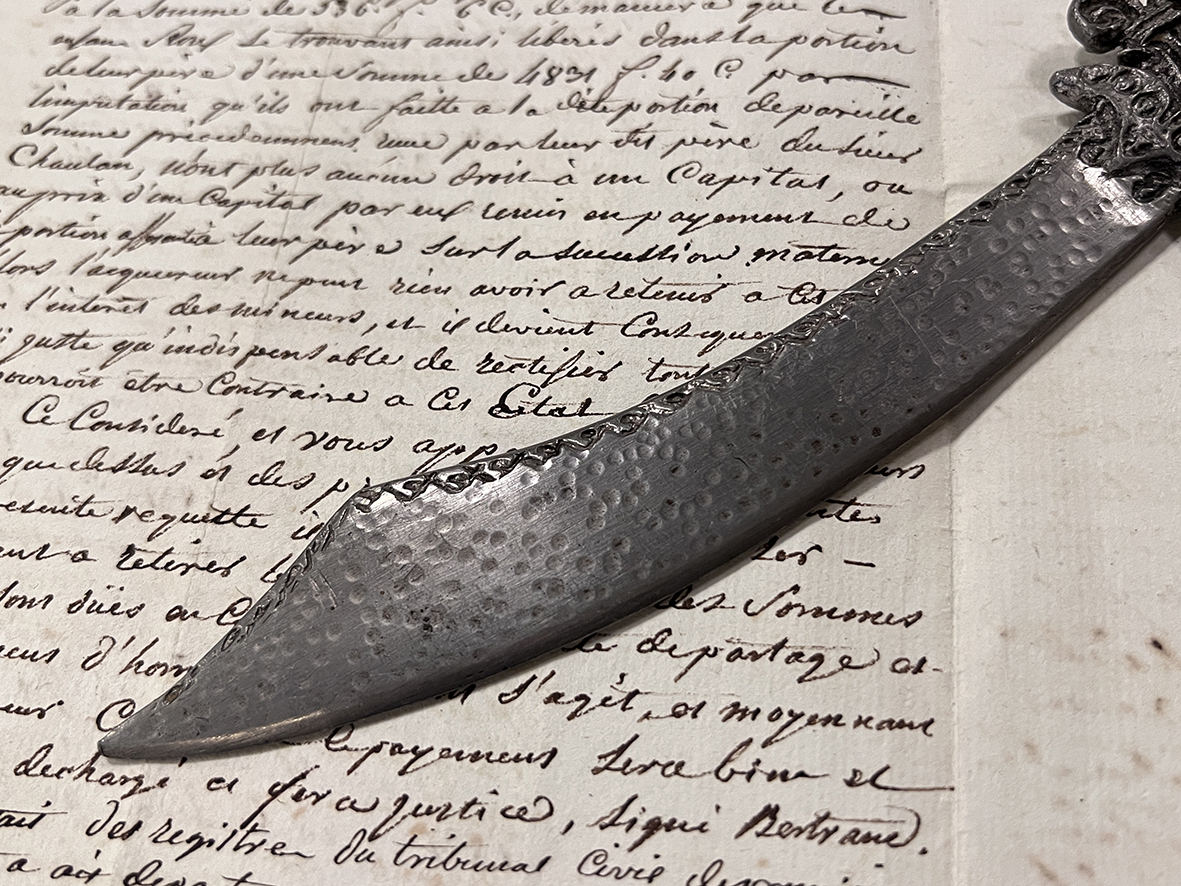 a la Somme de 536 f. 6 C, de maniere que les
enfans Roux Se trouvant ainsi libérés dans la portion
de leur père d'une Somme de 4831 f. 40 C par
l'imputation qu'ils ont faitte a la dite portion de pareille
Somme précédemment, par leur dit père du Sieur
Chaulan, n'ont plus aucun droit à un Capital, ou
au prix d'un Capital par eux remis en payement de
portion afferante a leur père Sur la Succession matern
lors l'acquereur ne peut rien avoir a retenir a Cet
l'interêt des mineurs, et il devient Conseque
juste qu'indispensable de rectifier tout
pourroit être Contraire a Cet Etat
Ce Consideré, et vous app
que dessus et des p
requette
a retirer
Sont düés au C des Sommes
d'hom de partage et
C S'agit, et moyennant
le payement Sera bien et
dechargé et fera justice, Signé Bertrand.
des registres du tribunal Civil
a aix depa